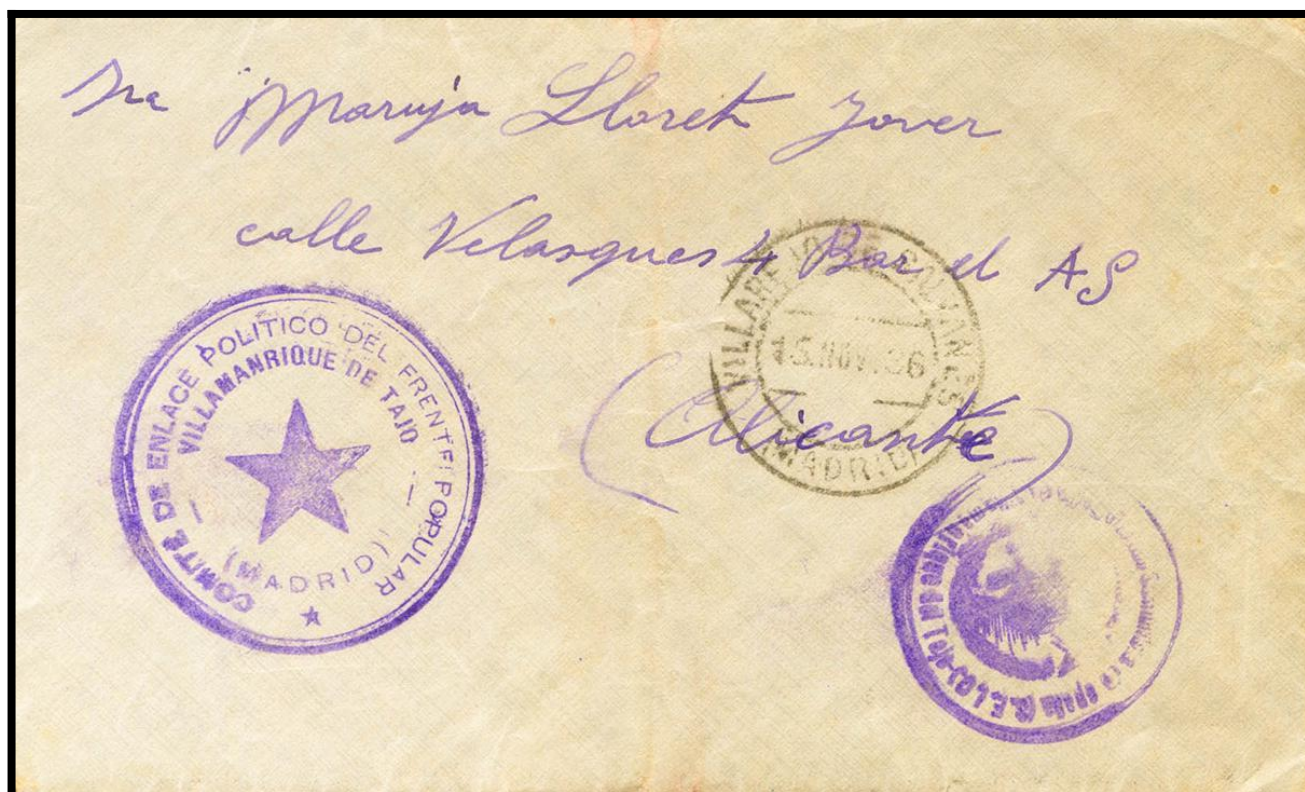 Sra Maruja Lloret Jover
calle Velasques 4 Bar el AS
(Alicante)
VILLAREJO DE SALVANES
15.NOV.36
MADRID
COMITE DE ENLACE POLITICO DEL FRENTE POPULAR
VILLAMANRIQUE DE TAJO
(MADRID)